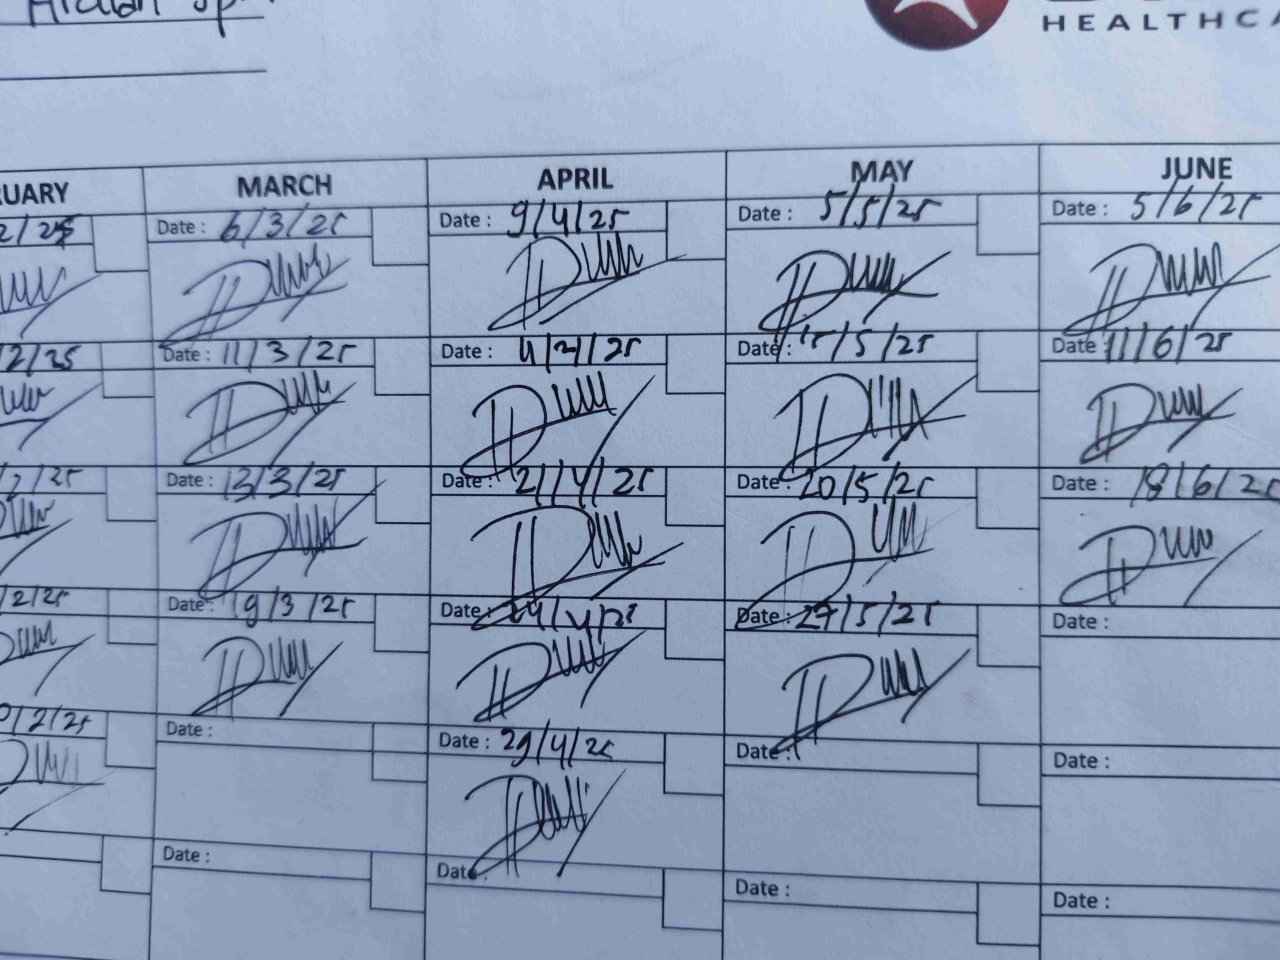 HEALTHCA
RUARY MARCH APRIL MAY JUNE
2/25 Date : 6/3/25 Date : 9/4/25 Date : 5/5/25 Date : 5/6/25
2/25 Date : 11/3/25 Date : Date : /5/25 Date 11/6/25
2/25 Date : 13/3/25 Date : 21/4/25 Date : 20/5/25 Date : 18/6/25
2/25 Date : 19/3/25 Date : Date : 27/5/25 Date :
/2/25 Date : Date : 29/4/25 Date : Date :
Date : Date : Date : Date :